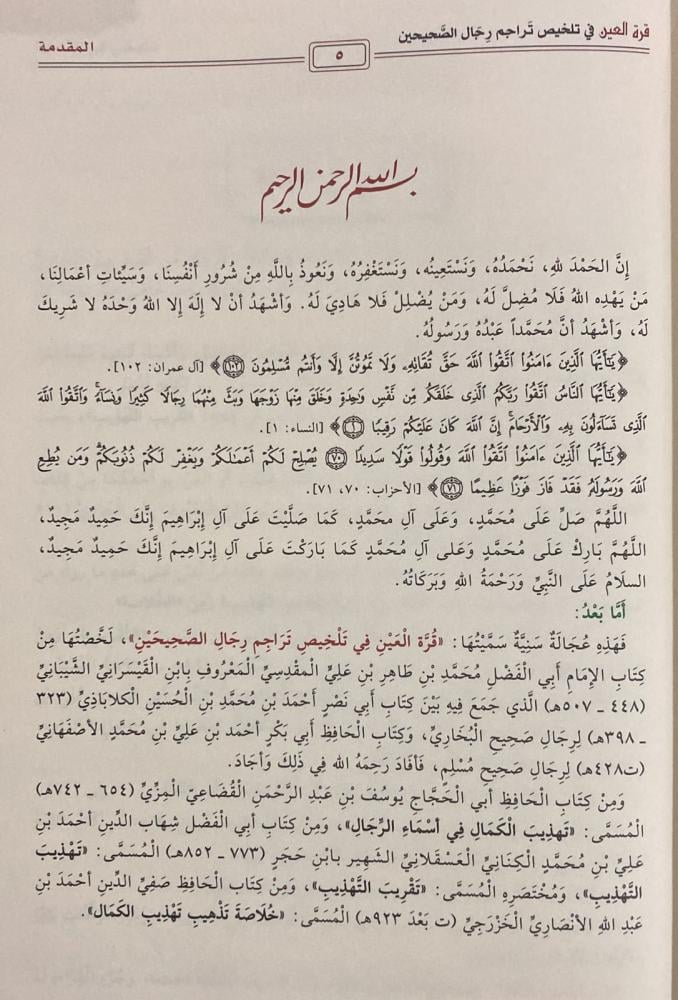 قرة العين في تلخيص تَراجم رِجَال الصَّحيحين
٥
المقدمة
بسم الله الرحمن الرحيم
إِنَّ الحَمْدَ للهِ، نَحْمَدُهُ، وَنَسْتَعِينُه، وَنَسْتَغْفِرُهُ، وَنَعُوذُ بِاللَّهِ مِنْ شُرُورِ أَنْفُسِنَا، وَسَيِّئَاتِ أعْمَالِنَا،
مَنْ يَهْدِه اللهُ فَلَا مُضِلَّ لَهُ، وَمَنْ يُضْلِلْ فَلا هَادِيَ لَهُ. وَأَشْهَدُ أنْ لا إِلَهَ إلا اللهُ وَحْدَهُ لا شَرِيكَ
لَهُ، وَأَشْهَدُ أنَّ مُحَمَّداً عَبْدُهُ وَرَسُولُهُ.
﴿يَٰٓأَيُّهَا ٱلَّذِينَ ءَامَنُوا۟ ٱتَّقُوا۟ ٱللَّهَ حَقَّ تُقَاتِهِۦ وَلَا تَمُوتُنَّ إِلَّا وَأَنتُم مُّسْلِمُونَ ١٠٢﴾ [آل عمران: ١٠٢].
﴿يَٰٓأَيُّهَا ٱلنَّاسُ ٱتَّقُوا۟ رَبَّكُمُ ٱلَّذِى خَلَقَكُم مِّن نَّفْسٍ وَٰحِدَةٍ وَخَلَقَ مِنْهَا زَوْجَهَا وَبَثَّ مِنْهُمَا رِجَالًا كَثِيرًا وَنِسَآءً ۚ وَٱتَّقُوا۟ ٱللَّهَ
ٱلَّذِى تَسَآءَلُونَ بِهِۦ وَٱلْأَرْحَامَ ۚ إِنَّ ٱللَّهَ كَانَ عَلَيْكُمْ رَقِيبًا ١﴾ [النساء: ١].
﴿يَٰٓأَيُّهَا ٱلَّذِينَ ءَامَنُوا۟ ٱتَّقُوا۟ ٱللَّهَ وَقُولُوا۟ قَوْلًا سَدِيدًا ٧٠ يُصْلِحْ لَكُمْ أَعْمَٰلَكُمْ وَيَغْفِرْ لَكُمْ ذُنُوبَكُمْ ۗ وَمَن يُطِعِ
ٱللَّهَ وَرَسُولَهُۥ فَقَدْ فَازَ فَوْزًا عَظِيمًا ٧١﴾ [الأحزاب: ٧٠، ٧١].
اللَّهُمَّ صَلِّ عَلَى مُحَمَّدٍ، وَعَلَى آلِ محمَّدٍ، كَمَا صَلَّيْتَ عَلَى آلِ إِبْرَاهِيمَ إِنَّكَ حَمِيدٌ مَجِيدٌ،
اللَّهُمَّ بَارِكْ عَلَى مُحَمَّدٍ وَعَلى آلِ مُحَمَّدٍ كَمَا بَارَكْتَ عَلَى آلِ إِبْرَاهِيمَ إِنَّكَ حَمِيدٌ مَجِيدٌ،
السَلَامُ عَلَى النَّبِيِّ وَرَحْمَةُ اللهِ وَبَرَكَاتُهُ.
أَمَّا بَعْدُ:
فَهَذِهِ عُجَالَةٌ سَنِيَّةٌ سَمَّيْتُهَا: «قُرَّة الْعَيْنِ فِي تَلْخِيصِ تَرَاجِمِ رِجَالِ الصَّحِيحَيْنِ»، لَخَّصْتُهَا مِنْ
كِتَابِ الإِمَامِ أَبِي الْفَضْلِ مُحَمَّدِ بْنِ طَاهِرِ بْنِ عَلِيٍّ الْمَقْدِسِيِّ الْمَعْرُوفِ بِابْنِ الْقَيْسَرَانِيِّ الشَّيْبَانِيِّ
(٤٤٨ ـ ٥٠٧هـ) الَّذي جَمَعَ فِيهِ بَيْنَ كِتَابِ أَبِي نَصْرٍ أَحْمَدَ بْنِ مُحَمَّدِ بْنِ الْحُسَيْنِ الْكَلَابَاذِيِّ (٣٢٣
ـ ٣٩٨هـ) لِرِجَالِ صَحِيحِ الْبُخَارِيِّ، وَكِتَابِ الْحَافِظِ أَبِي بَكْرٍ أحْمَدَ بْنِ عَلِيِّ بْنِ مُحَمَّدٍ الأَصْفَهَانِيِّ
(ت٤٢٨هـ) لِرِجَالِ صَحِيحِ مُسْلِمٍ، فَأَفَادَ رَحِمَهُ الله فِي ذَلِكَ وَأَجَادَ.
وَمِنْ كِتَابِ الْحَافِظِ أبي الْحَجَّاجِ يُوسُفَ بْنِ عَبْدِ الرَّحْمَنِ الْقُضَاعِيِّ المِزِّيِّ (٦٥٤ ـ ٧٤٢هـ)
الْمُسَمَّى: «تهذِيبَ الْكَمَالِ فِي أسْمَاءِ الرِّجَالِ»، وَمِنْ كِتَابِ أبي الْفَضْلِ شِهَابِ الدِّينِ أحْمَدَ بْنِ
عَلِيِّ بْنِ مُحَمَّدٍ الْكِنَانِيِّ الْعَسْقَلَانِيِّ الشَهِيرِ بابْنِ حَجَرٍ (٧٧٣ ـ ٨٥٢هـ) الْمُسَمَّى: «تَهْذِيبَ
التَّهْذِيبِ»، وَمُخْتَصَرِهِ الْمُسَمَّى: «تَقْرِيبَ التَّهْذِيبِ»، وَمِنْ كِتَابِ الْحَافِظِ صَفِيِّ الدِّينِ أحْمَدَ بْنِ
عَبْدِ اللهِ الأَنْصَارِيِّ الْخَزْرَجِيِّ (ت بَعْدَ ٩٢٣هـ) الْمُسَمَّى: «خُلَاصَةَ تَذْهِيبِ تَهْذِيبِ الكَمَال».